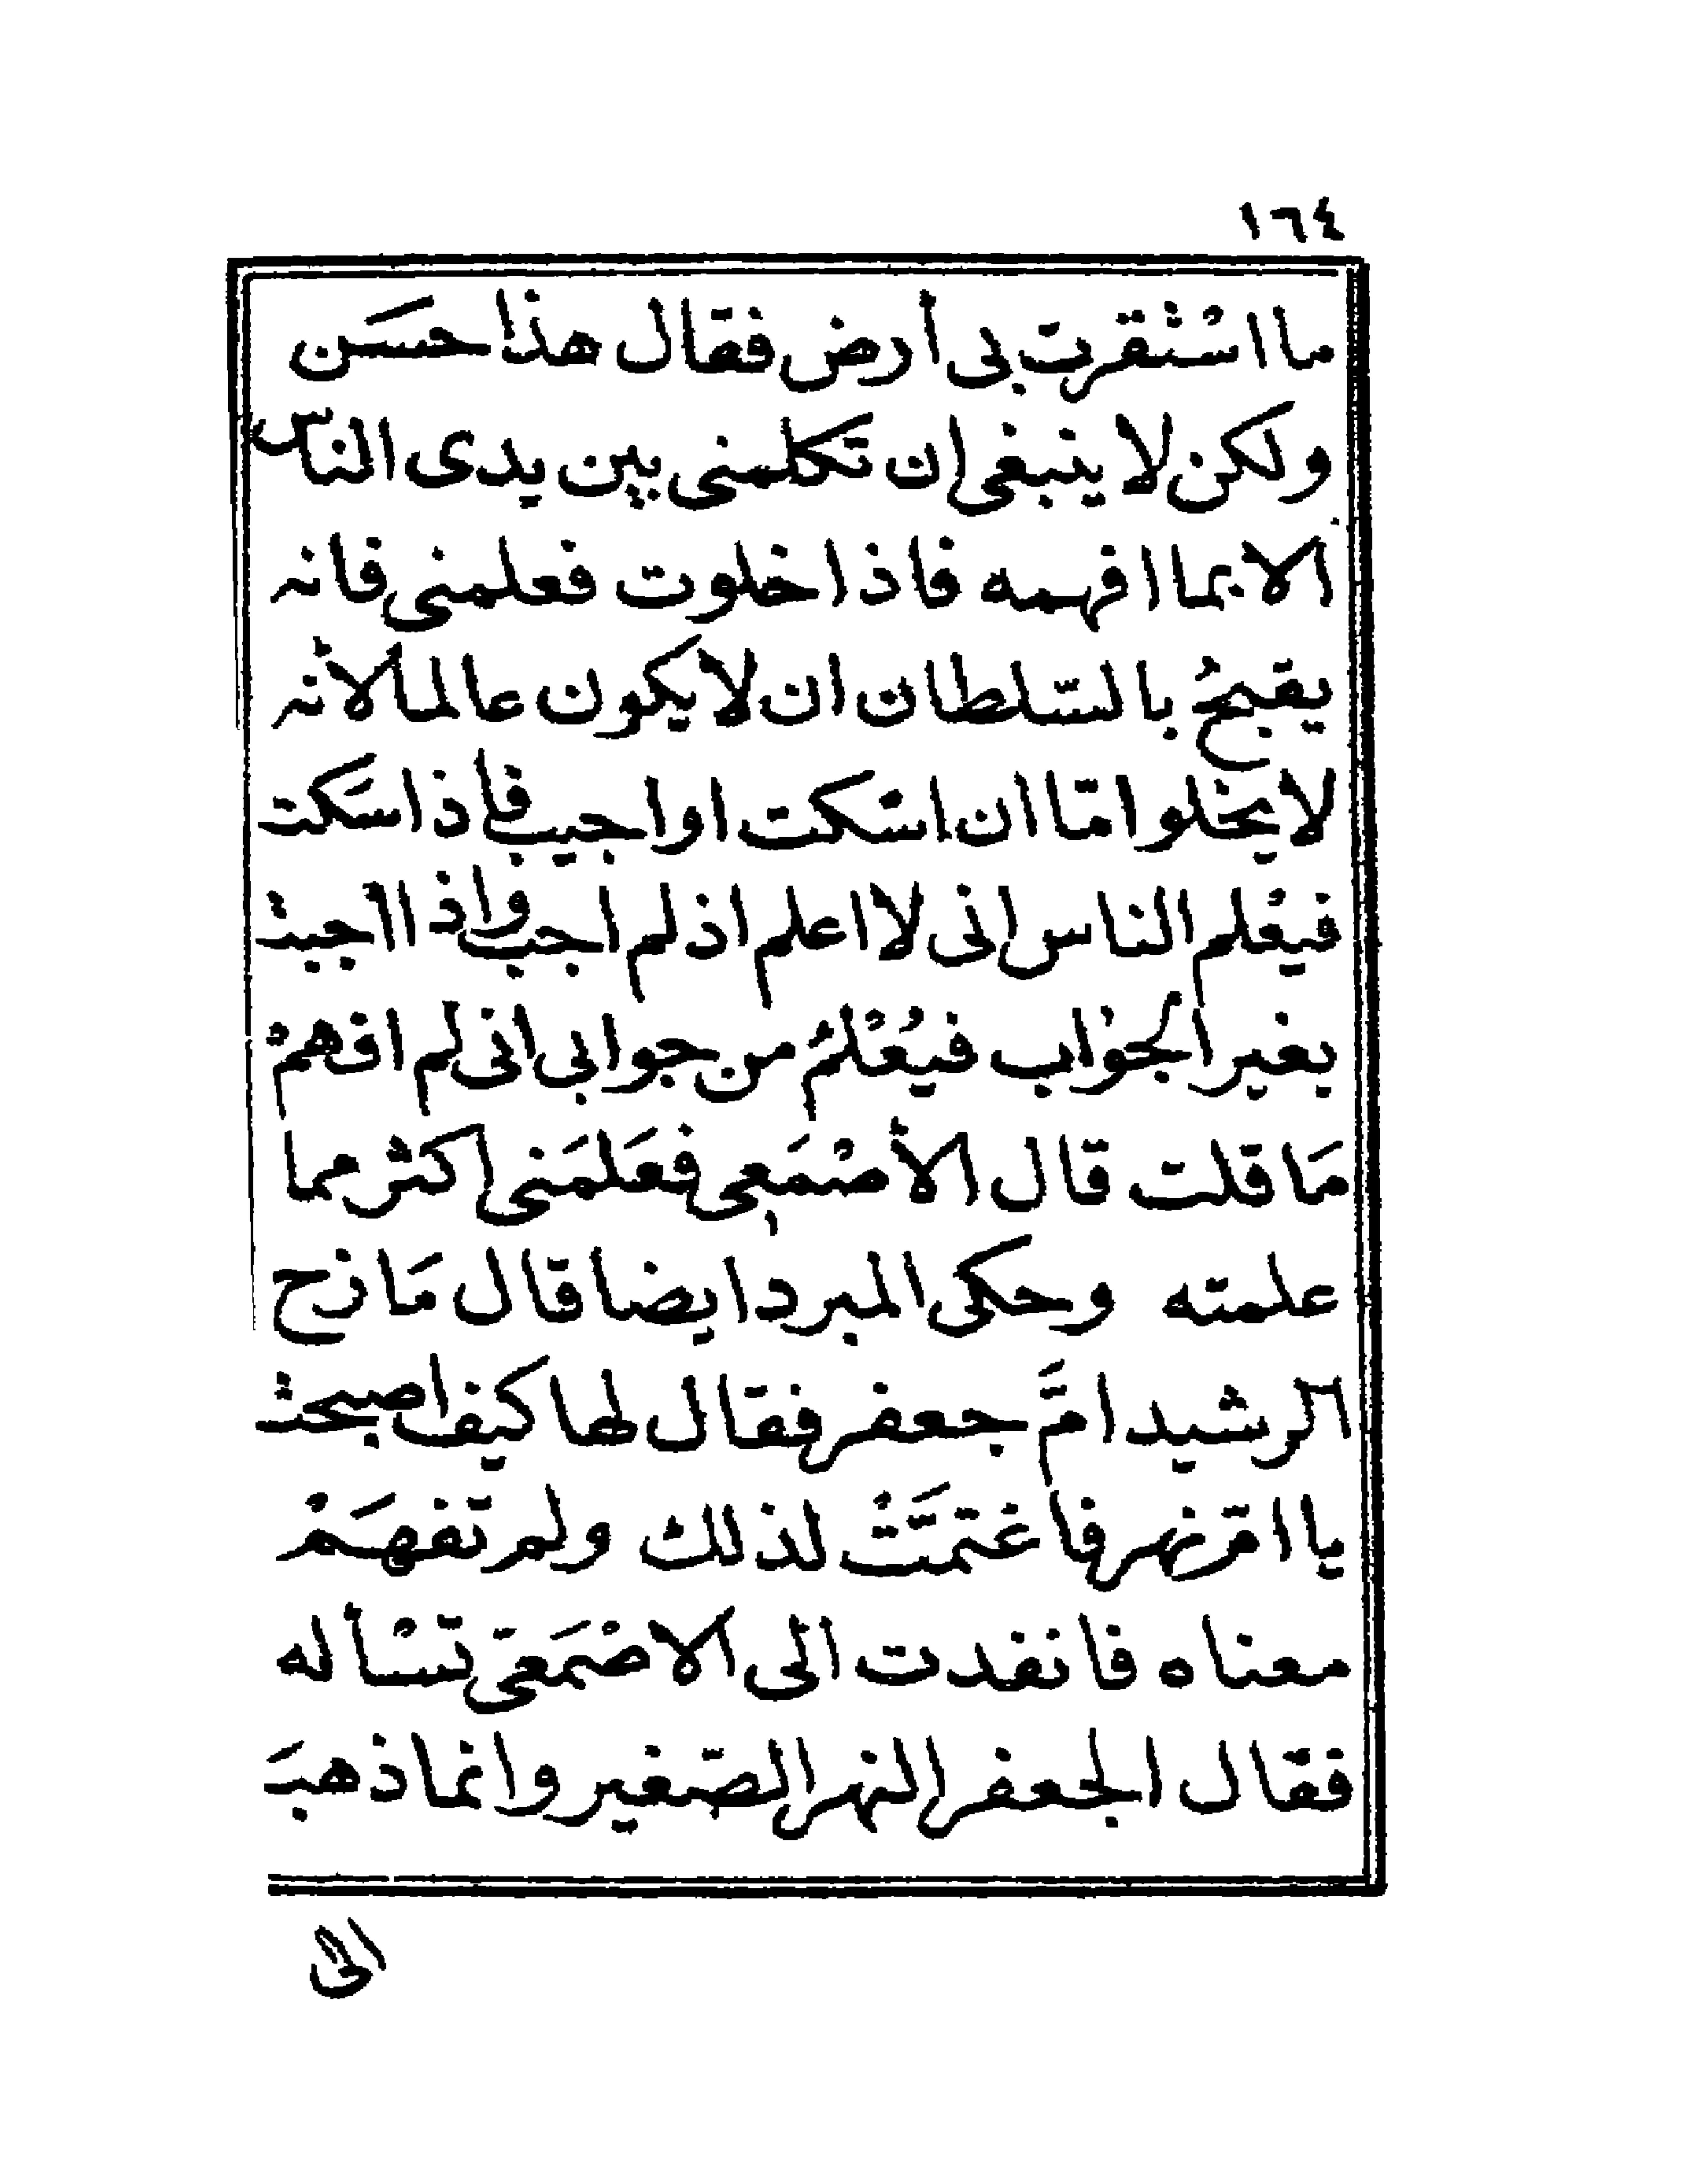 ١٦٤
ما اسْتقرت بى أرض فقال هذا حسَن
ولكن لا ينبغى ان تكلمنى بين يدى الناس
الا بما افهمه فاذا خلوت فعلمنى فانه
يقبحُ بالسّلطان ان لا يكون عالما لأنه
لا يخلوا امّا ان اسكت او اجيب فاذا سَكت
فيعْلم الناس انى لا اعلم اذ لم اجب واذا اجبت
بغير الجوَاب فيُعْلمُ من جوابى انى لم افهمْ
مَا قلت قال الأصْمَعى فعَلمَنى اكثر مما
علمته وحكى المبرد ايضا قال مَازح
الرشيد امَّ جعفر فقال لها كيف اصبحت
يا امّ نهر فاغتمَّتْ لذلك ولم تفهَمْ
معناه فانفدت الى الاصْمَعىّ تسْأله
فقال الجعفر النهر الصّغير وانما ذهبَ
الى